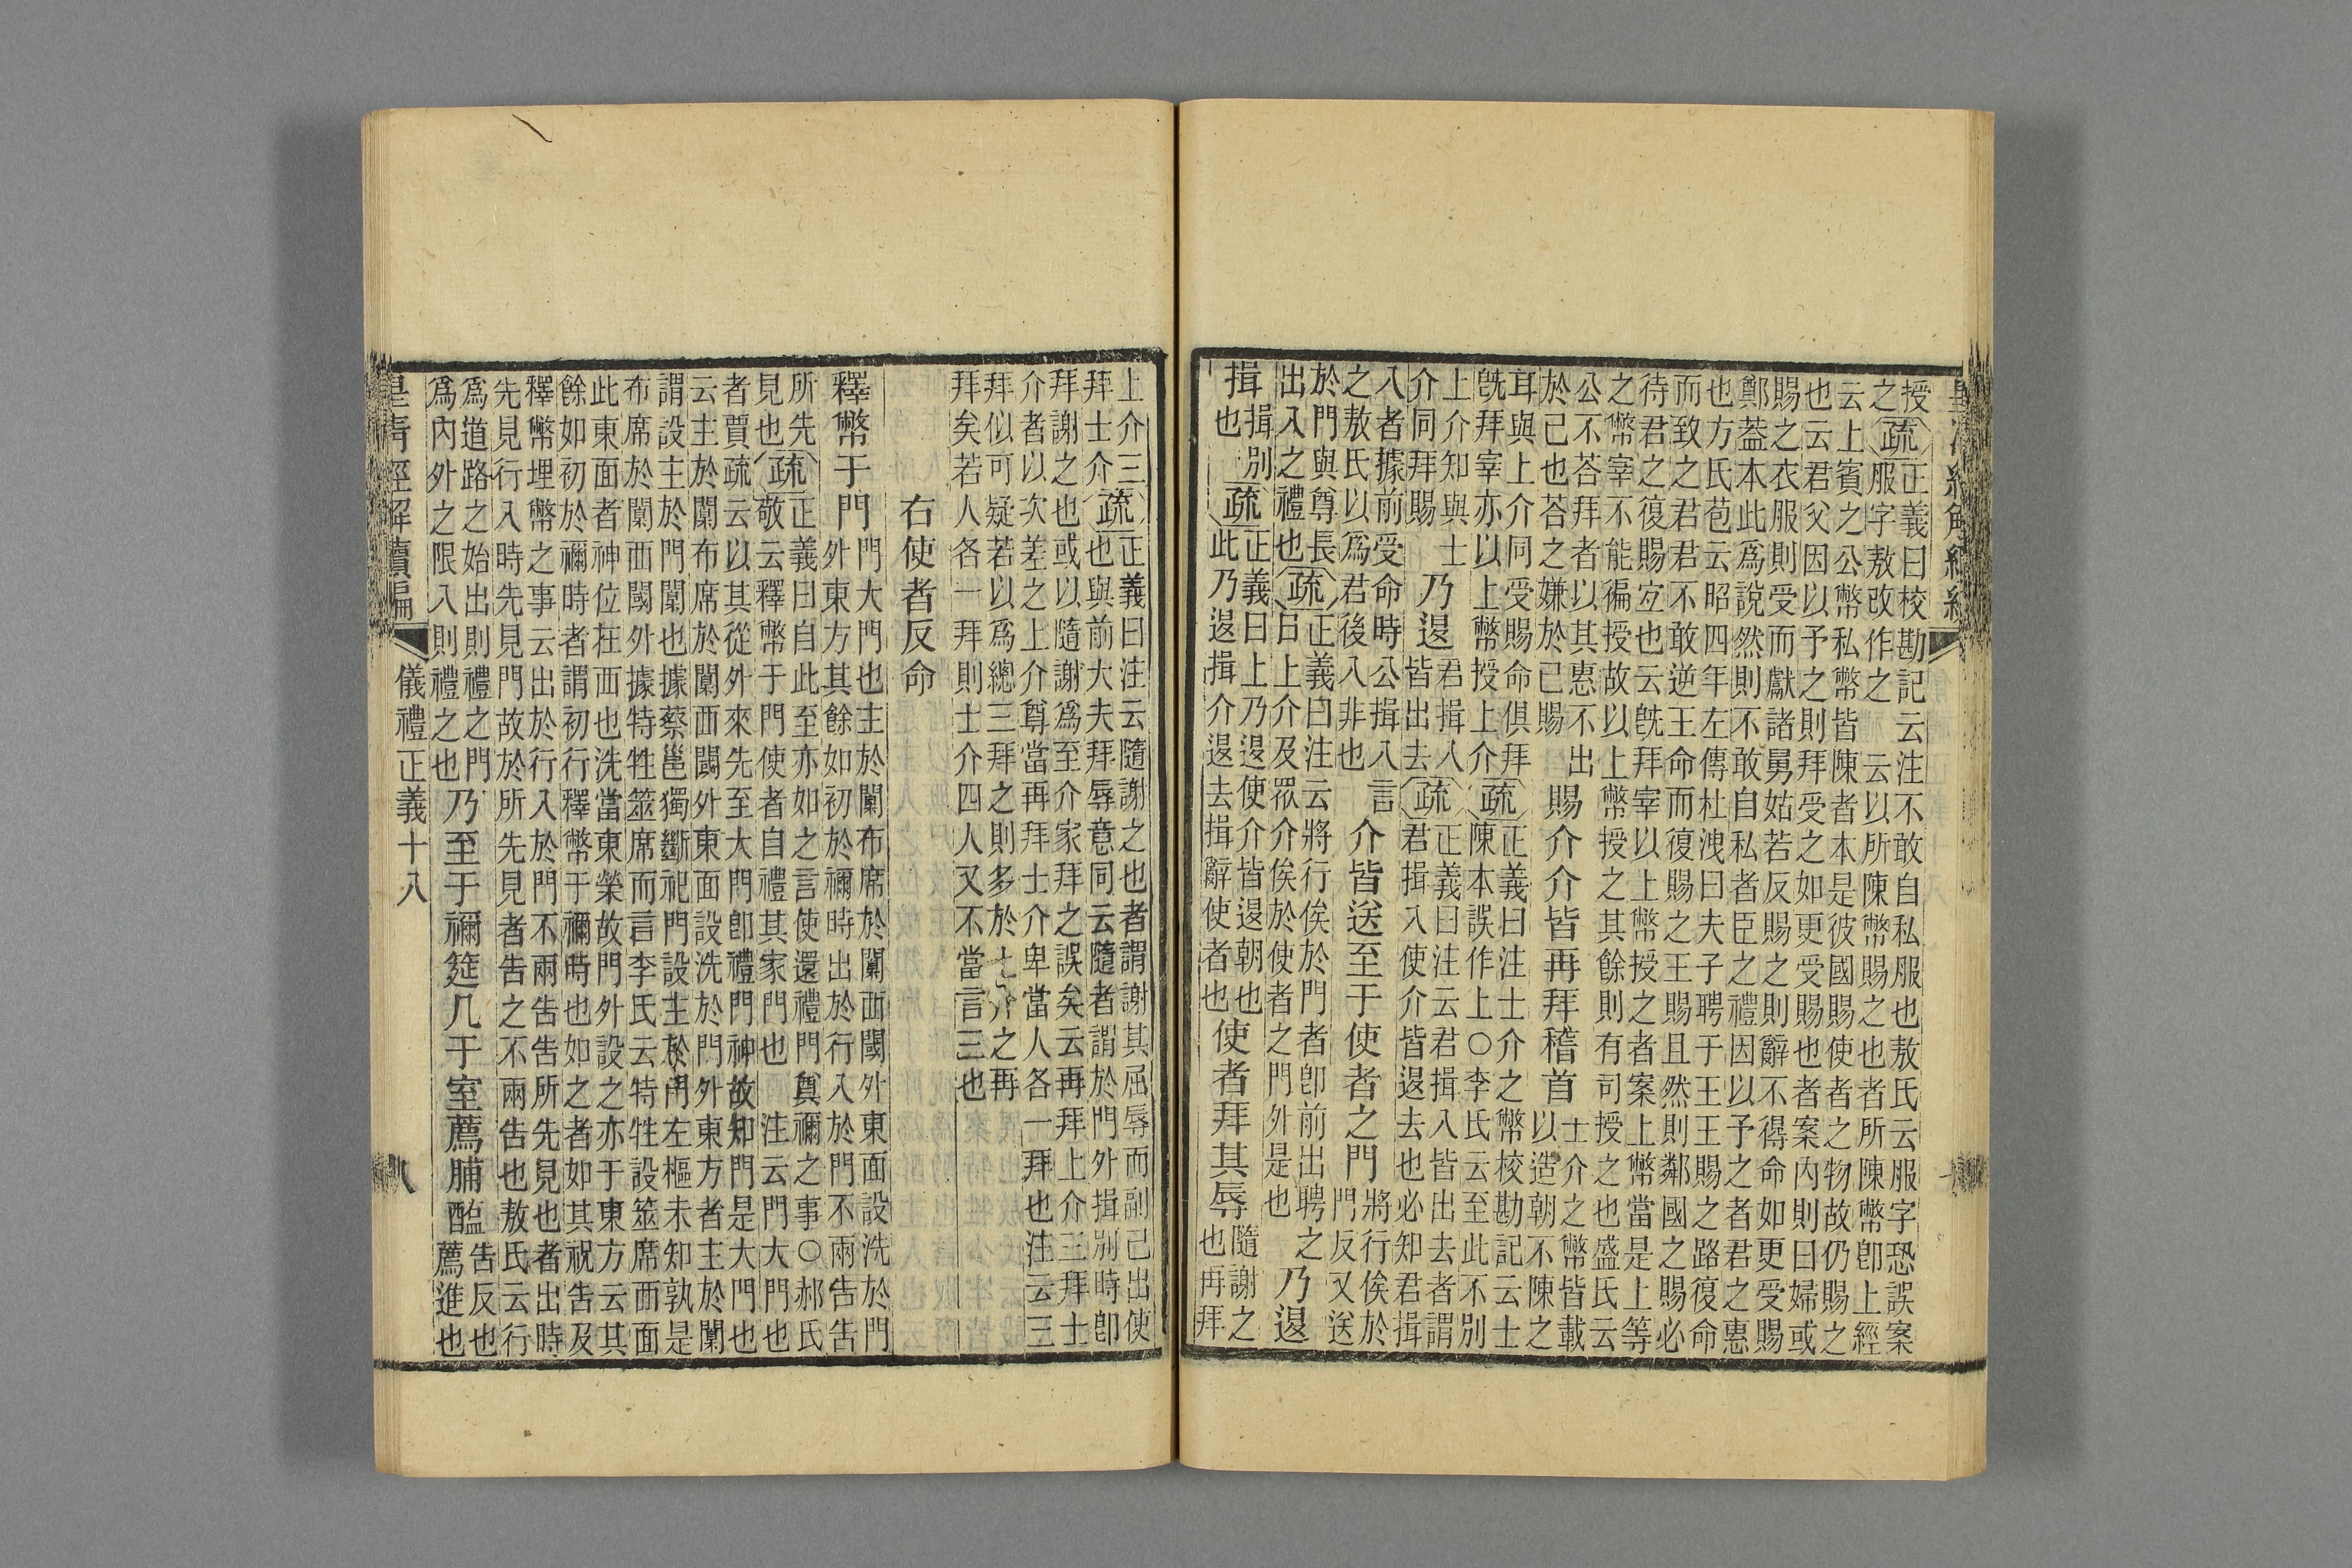 授之疏正義曰校勘記云注不敢自私服也敖氏云服字恐誤案
服字敖改作之　云以所陳幣賜之也者所陳幣卽上經
云上賓之公幣私幣皆陳者本是彼國賜使者之物故仍賜之
也云君父因以予之則拜受之如更受賜也者案內則曰婦或
賜之衣服則受而獻諸舅姑若反賜之則辭不得命如更受賜
鄭葢本此爲說然則不敢自私者臣之禮因以予之者君之惠
也方氏苞云昭四年左傳杜洩曰夫子聘于王王賜之路復命
而致之君君不敢逆王命而復賜之王賜且然則鄰國之賜必
待君之復賜宐也云旣拜宰以上幣授之者案上幣當是上等
之幣宰不能徧授故以上幣授之其餘則有司授之也盛氏云
公不荅拜者以其惠不出
於己也荅之嫌於己賜
賜介介皆再拜稽首士介之幣皆載
以造朝不陳之
耳與上介同受賜命俱拜
旣拜宰亦以上幣授上介
疏正義曰注士介之幣校勘記云士
陳本誤作上○李氏云至此不別
上介知與士
介同拜賜
乃退君揖入
皆出去
疏正義曰注云君揖入皆出去者謂
君揖入使介皆退去也必知君揖
入者據前受命時公揖入言
之敖氏以爲君後入非也
介皆送至于使者之門將行俟於
門反又送
於門與尊長
出入之禮也
疏正義曰注云將行俟於門者卽前出聘之
曰上介及眾介俟於使者之門外是也
乃退
揖揖別
也
疏正義曰上乃退使介皆退朝也
此乃退揖介退去揖辭使者也
使者拜其辱隨謝之
也再拜
上介三
拜士介
疏正義曰注云隨謝之也者謂謝其屈辱而副己出使
也與前大夫拜辱意同云隨者謂於門外揖別時卽
拜謝之也或以隨謝爲至介家拜之誤矣云再拜上介三拜士
介者以次差之上介尊當再拜士介卑當人各一拜也注云三
拜似可疑若以爲總三拜之則多於上介之再
拜矣若人各一拜則士介四人又不當言三也
右使者反命
釋幣于門門大門也主於闑布席於闑西閾外東面設洗於門
外東方其餘如初於禰時出於行入於門不兩告告
所先
見也
疏正義曰自此至亦如之言使還禮門奠禰之事○郝氏
敬云釋幣于門使者自禮其家門也　注云門大門也
者賈疏云以其從外來先至大門卽禮門神故知門是大門也
云主於闑布席於闑西閾外東面設洗於門外東方者主於闑
謂設主於門闑也據蔡邕獨斷祀門設主於門左樞未知孰是
布席於闑西閾外據特牲筮席而言李氏云特牲設筮席西面
此東面者神位在西也洗當東榮故門外設之亦于東方云其
餘如初於禰時者謂初行釋幣于禰時也如之者如其祝告及
釋幣埋幣之事云出於行入於門不兩告告所先見也者出時
先見行入時先見門故於所先見者告之不兩告也敖氏云行
爲道路之始出則禮之門
爲內外之限入則禮之也
乃至于禰筵几于室薦脯醢告反也
薦進也
皇清經解續編　儀禮正義十八　八